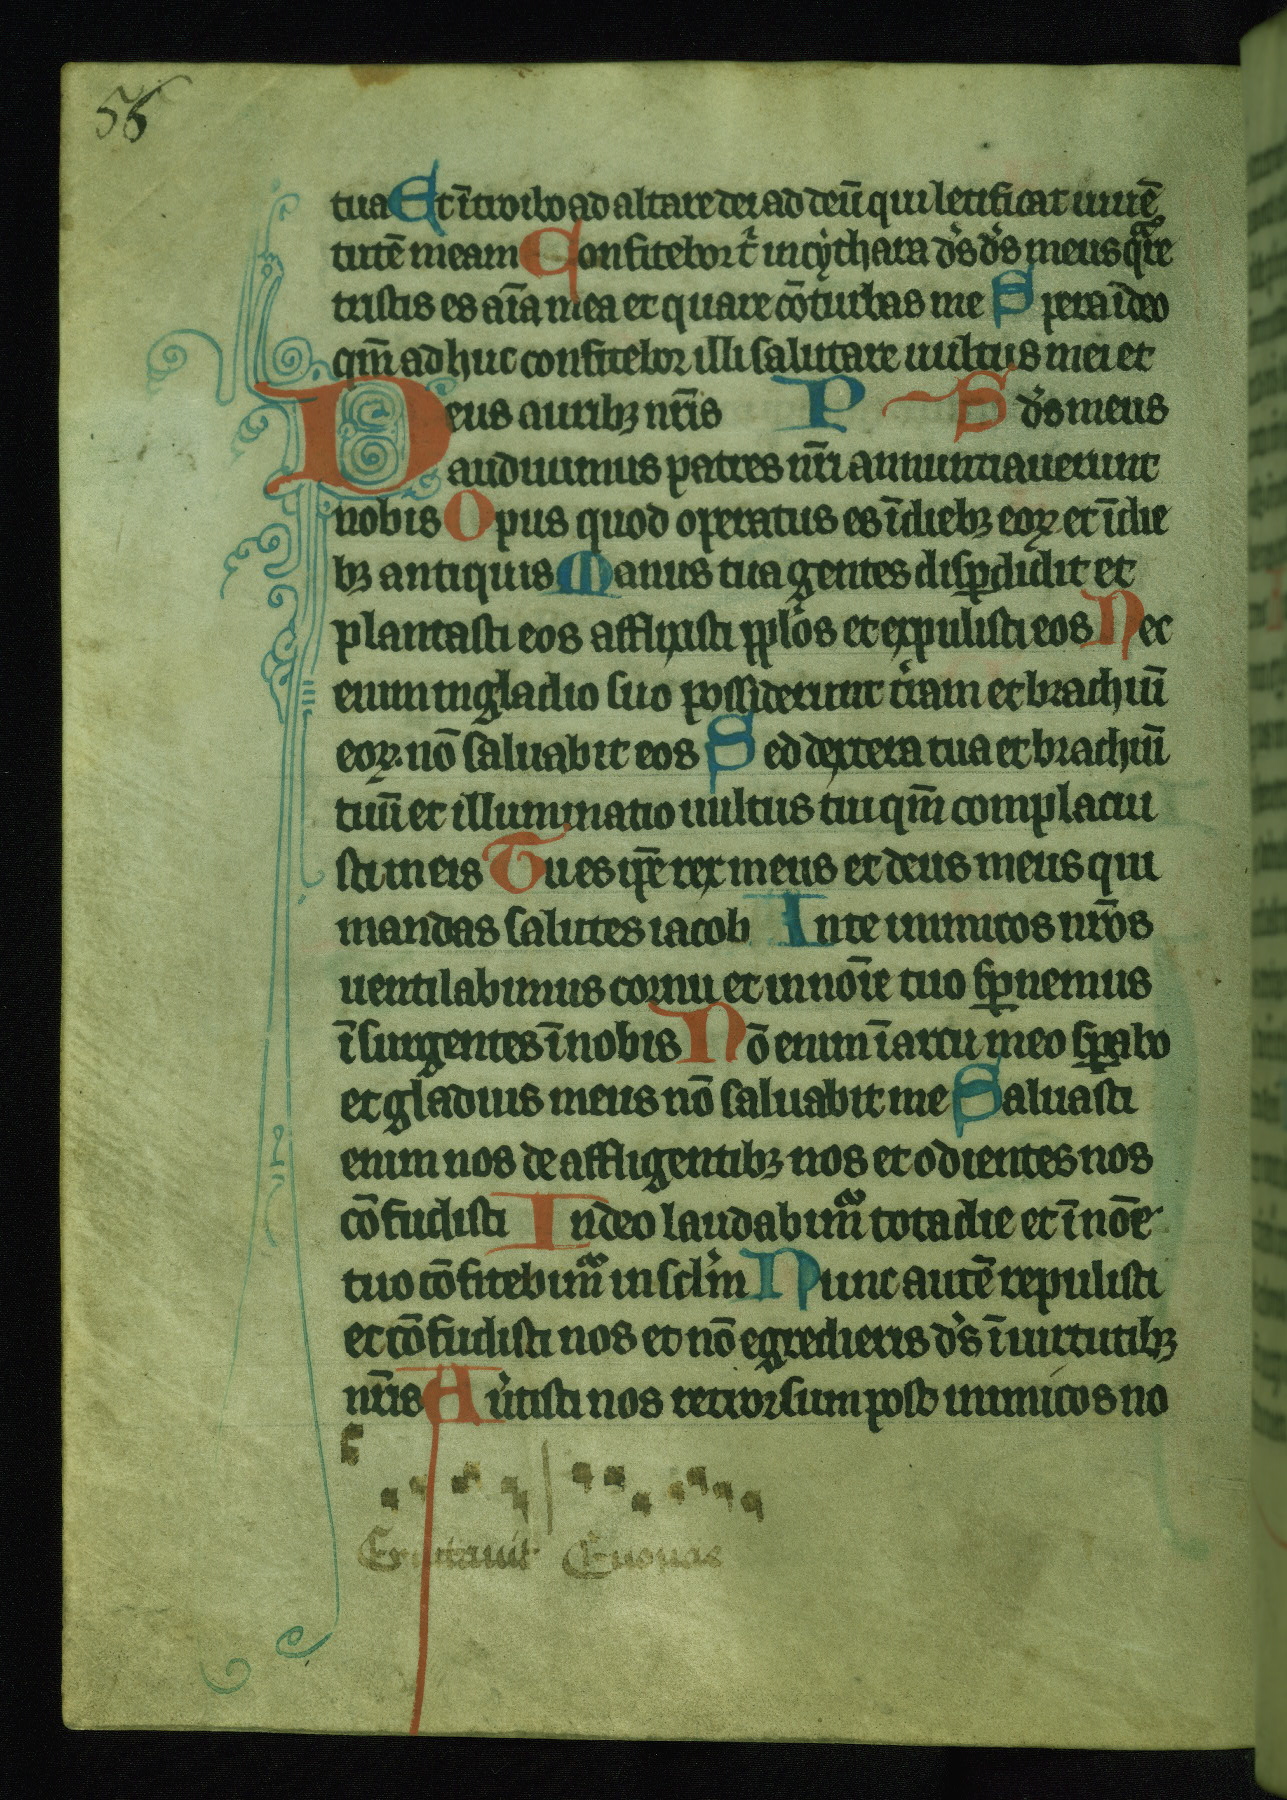 56
tua Et ītroibo ad altare dei ad deū qui letificat iuuē
tutē meam Confitebor t̄ in cythara d̄s d̄s meus qͣre
tristis es aīa mea et quare cōturbas me Spera ī deo
qm̄ adhuc confitebor illi salutare uultus mei et
Deus auribꝫ nr̄is P S d̄s meus
audiuimus patres nr̄i annuntiauerunt
nobis Opus quod operatus es ī diebꝫ eoꝝ et ī die
bꝫ antiquis Manus tua gentes disꝑdidit et
plantasti eos afflixisti pp̄los et expulisti eos Nec
enim in gladio suo possiderunt t̄ram et brachiū
eoꝝ nō saluabit eos Sed dextera tua et brachiū
tuū et illuminatio uultus tui qm̄ complacui
sti in eis Tu es ip̄e rex meus et deus meus qui
mandas salutes iacob In te inimicos nr̄os
uentilabimus cornu et in noīe tuo sꝑnemus
īsurgentes ī nobis Nō enim ī arcu meo sꝑabo
et gladius meus nō saluabit me Saluasti
enim nos de affligentibꝫ nos et odientes nos
cōfudisti In deo laudabimͣ tota die et ī nōe
tuo cōfitebimͣ in scl̄m Nunc autē repulisti
et cōfudisti nos et nō egredieris d̄s ī uirtutibꝫ
nr̄is Au̓tisti nos retrorsum post inimicos no
Eructauit Euouae